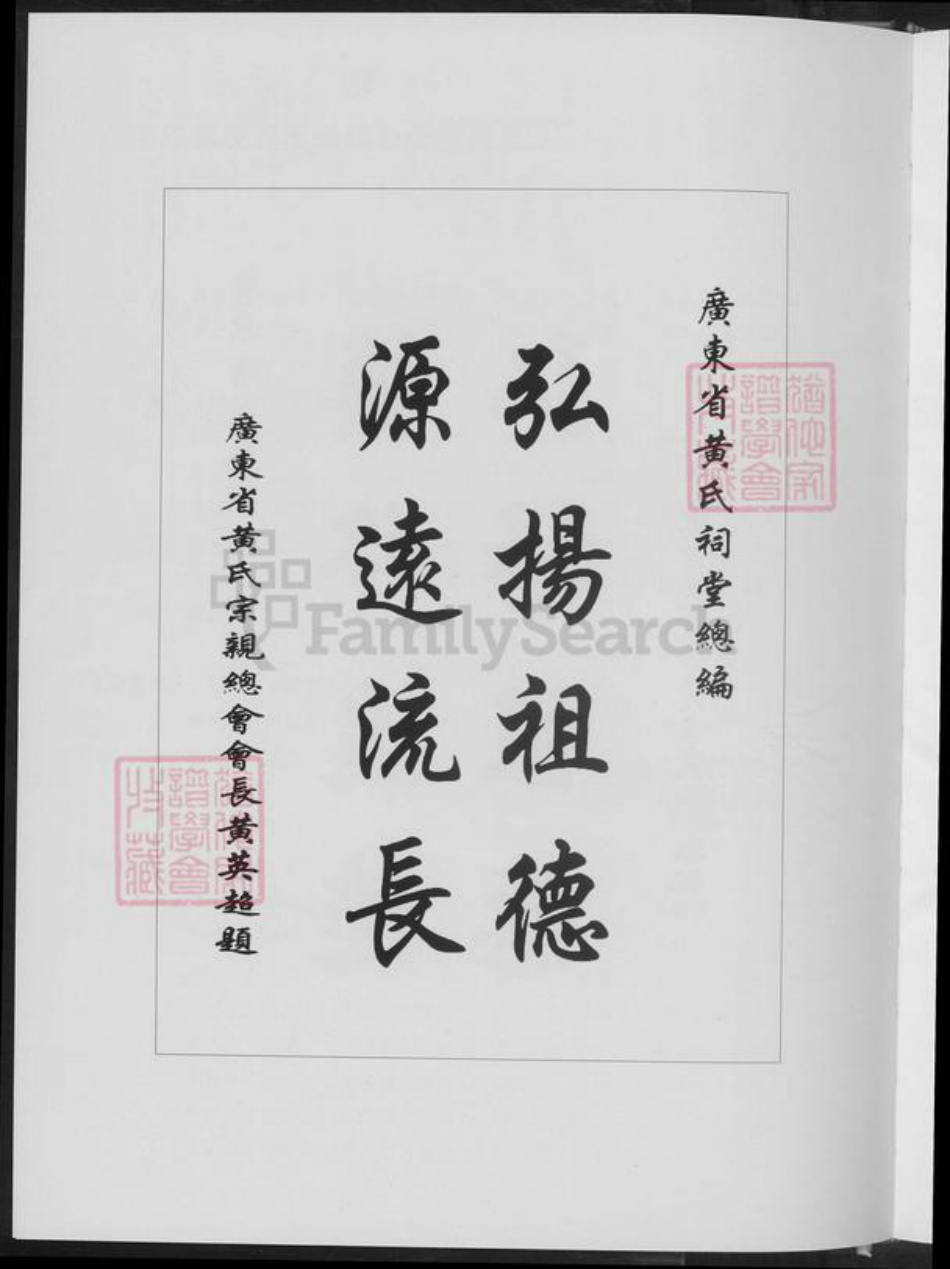 廣東省黃氏祠堂總編
弘揚祖德
源遠流長
廣東省黃氏宗親總會會長黃英超題
FamilySearch